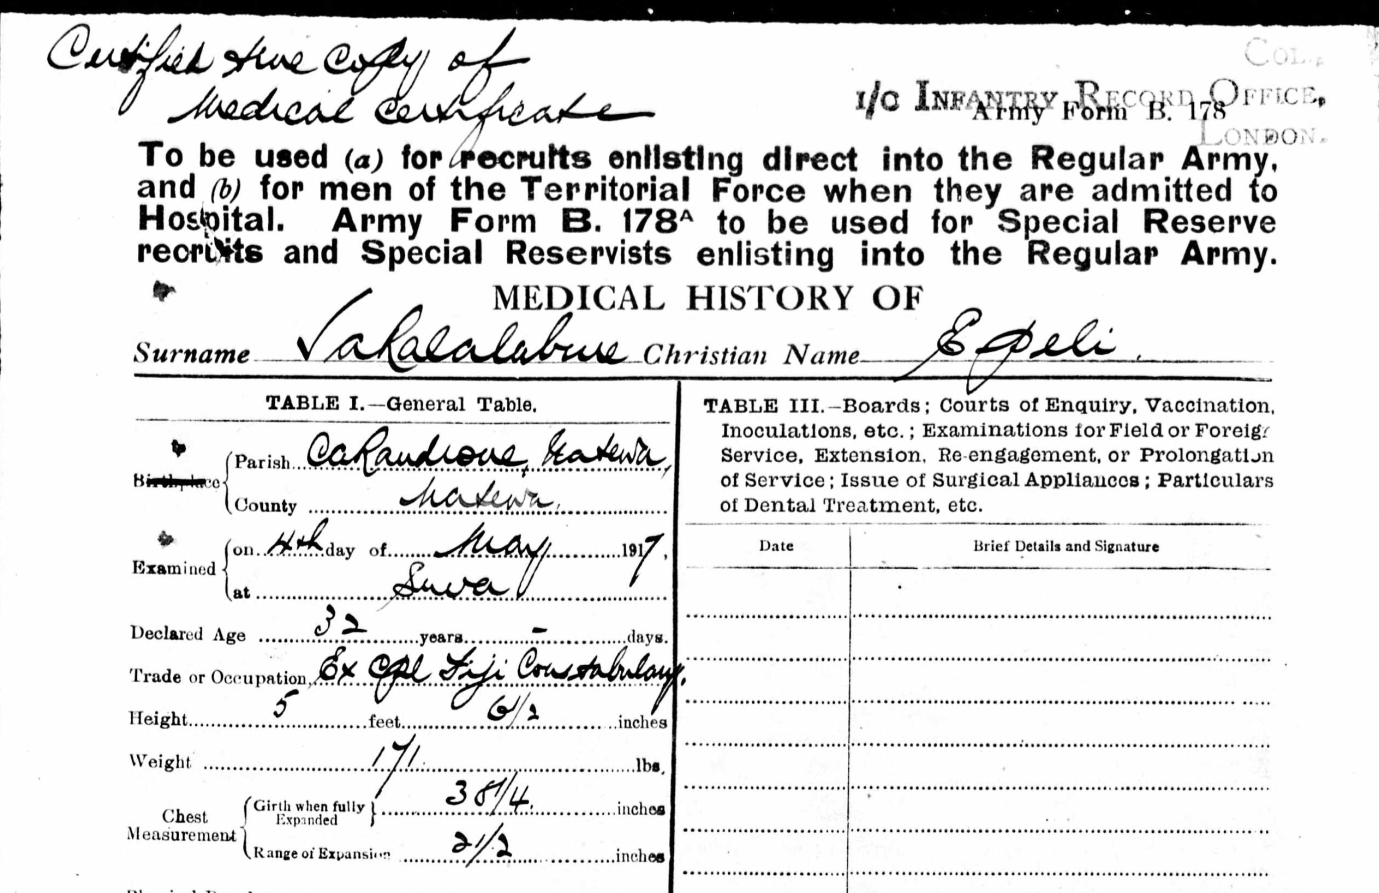 Certified true Copy of
Medical Certificate
COL.,
I/C INFANTRY RECORD OFFICE,
Army Form B. 178
LONDON.
To be used (a) for recruits enlisting direct into the Regular Army,
and (b) for men of the Territorial Force when they are admitted to
Hospital. Army Form B. 178A to be used for Special Reserve
recruits and Special Reservists enlisting into the Regular Army.
MEDICAL HISTORY OF
Surname Vakalalabure Christian Name Epeli
TABLE I.—General Table.
Birthplace
Parish
County
Examined
on 4th day of May 1917,
at Suva
Declared Age 32 years - days.
Trade or Occupation Ex Cpl Fiji Constabulary.
Height 5 feet 6 1/2 inches
Weight 171 lbs.
Chest Measurement
Girth when fully Expanded 38 1/4 inches
Range of Expansion 2 1/2 inches
TABLE III.—Boards; Courts of Enquiry, Vaccination,
Inoculations, etc.; Examinations for Field or Foreign
Service, Extension, Re-engagement, or Prolongation
of Service; Issue of Surgical Appliances; Particulars
of Dental Treatment, etc.
Date Brief Details and Signature